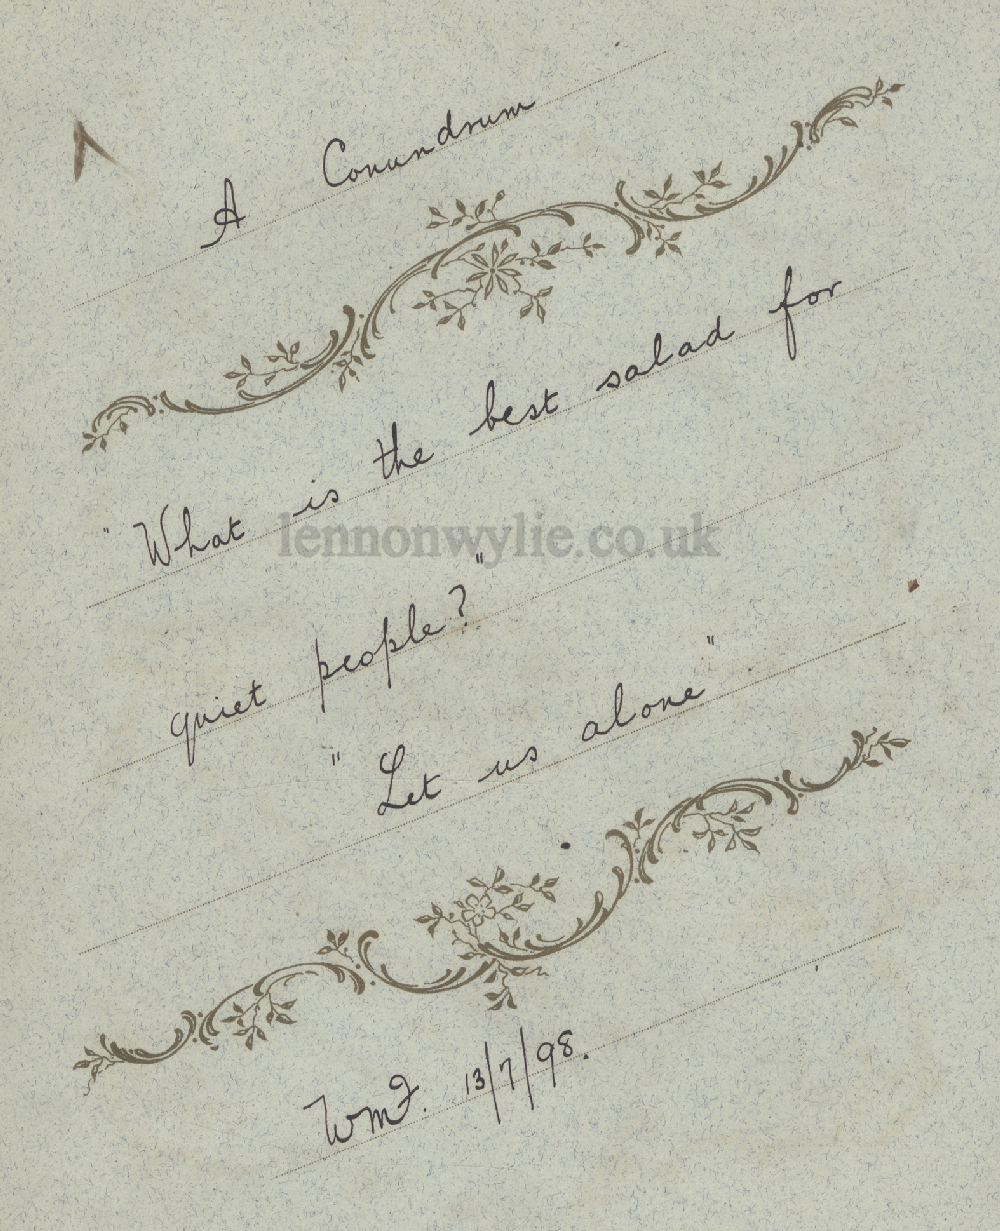 A Conundrum
"What is the best salad for
lennonwylie.co.uk
quiet people?"
"Let us alone"
WmF. 13/7/98.